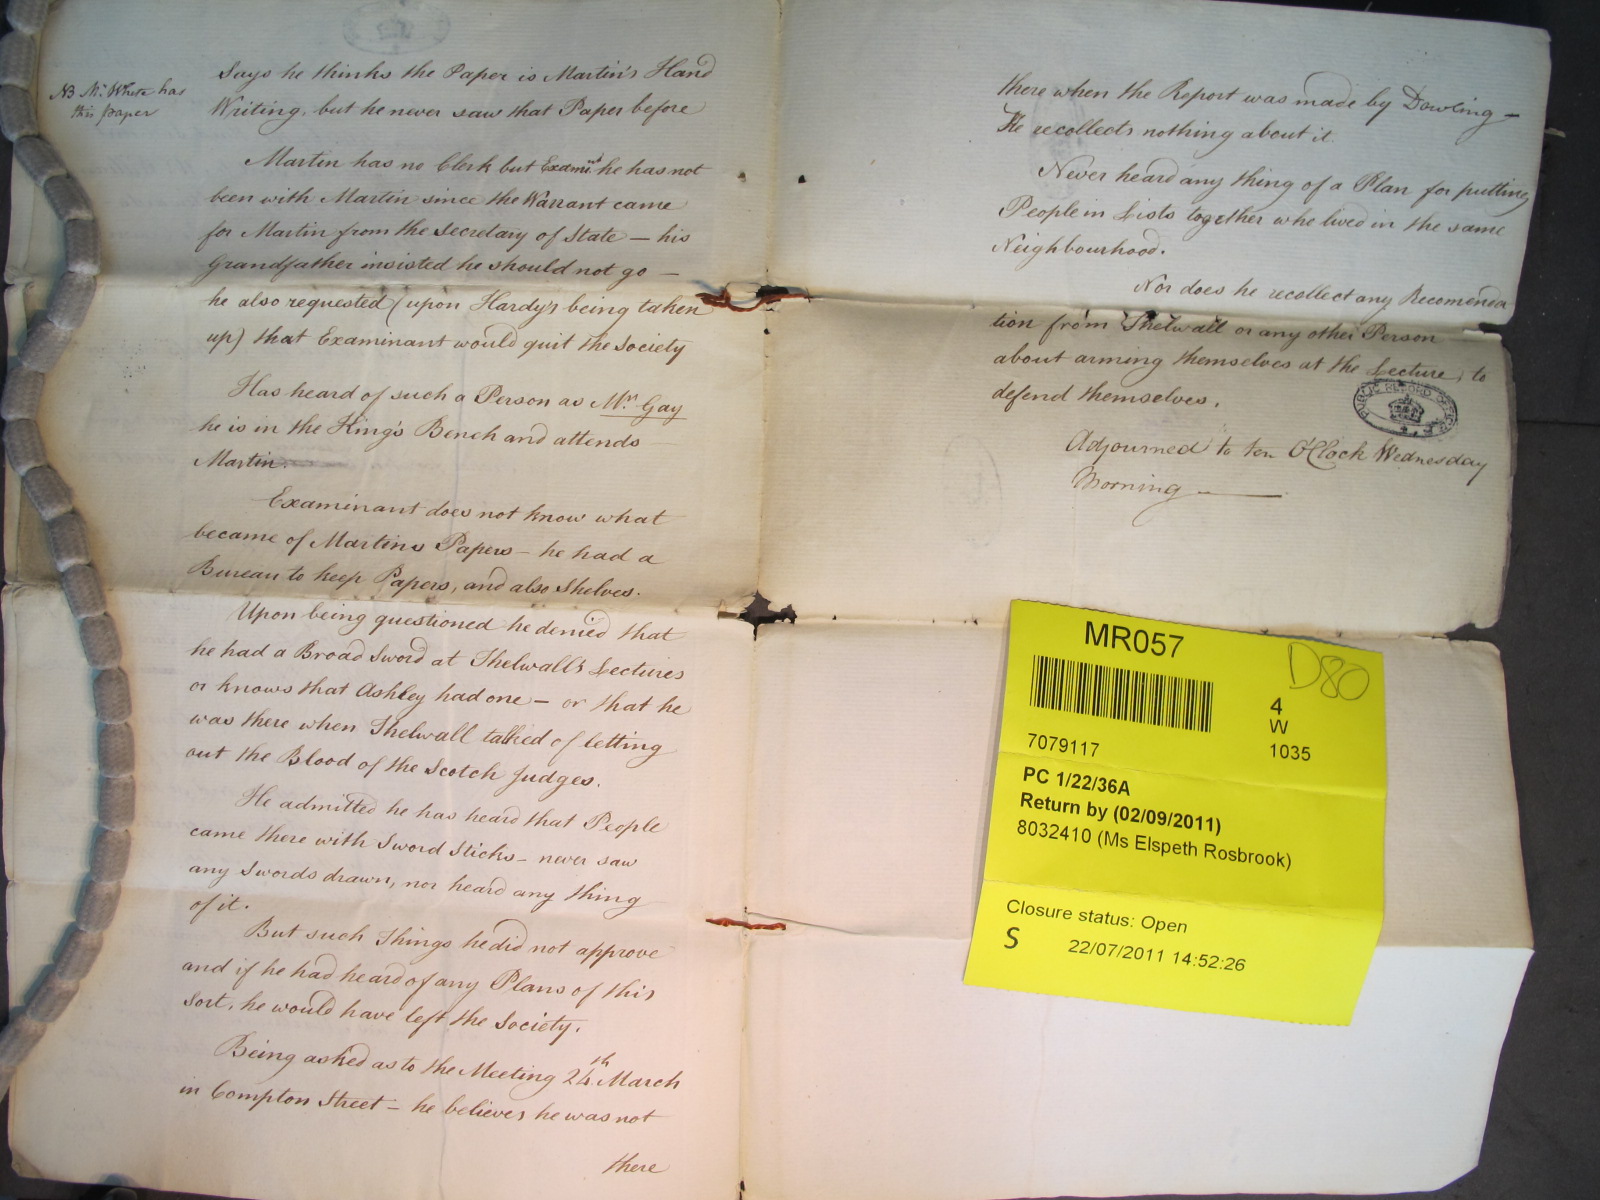 NB Mr. White has
this paper
Says he thinks the Paper is Martin's Hand
Writing, but he never saw that Paper before
Martin has no Clerk but Examint. he has not
been with Martin since the Warrant came
for Martin from the Secretary of State — his
Grandfather insisted he should not go —
he also requested (upon Hardy's being taken
up) that Examinant would quit the Society
Has heard of such a Person as Mr. Gay
he is in the King's Bench and attends
Martin.
Examinant does not know what
became of Martins Papers — he had a
Bureau to keep Papers, and also Shelves.
Upon being questioned he denied that
he had a Broad Sword at Thelwall's Lectures
or knows that Ashley had one — or that he
was there when Thelwall talked of letting
out the Blood of the Scotch Judges.
He admitted he has heard that People
came there with Sword Sticks — never saw
any Swords drawn, nor heard any thing
of it.
But such Things he did not approve
and if he had heard of any Plans of this
Sort, he would have left the Society.
Being asked as to the Meeting 24th March
in Compton Street — he believes he was not
there
there when the Report was made by Dowling —
He recollects nothing about it.
Never heard any thing of a Plan for putting
People in Lists together who lived in the same
Neighbourhood.
Nor does he recollect any Recomenda
tion from Thelwall or any other Person
about arming themselves at the Lecture, to
defend themselves.
PUBLIC RECORD OFFICE
Adjourned to ten O'Clock Wednesday
Morning —
MR057
D80
4
W
7079117
1035
PC 1/22/36A
Return by (02/09/2011)
8032410 (Ms Elspeth Rosbrook)
Closure status: Open
S 22/07/2011 14:52:26